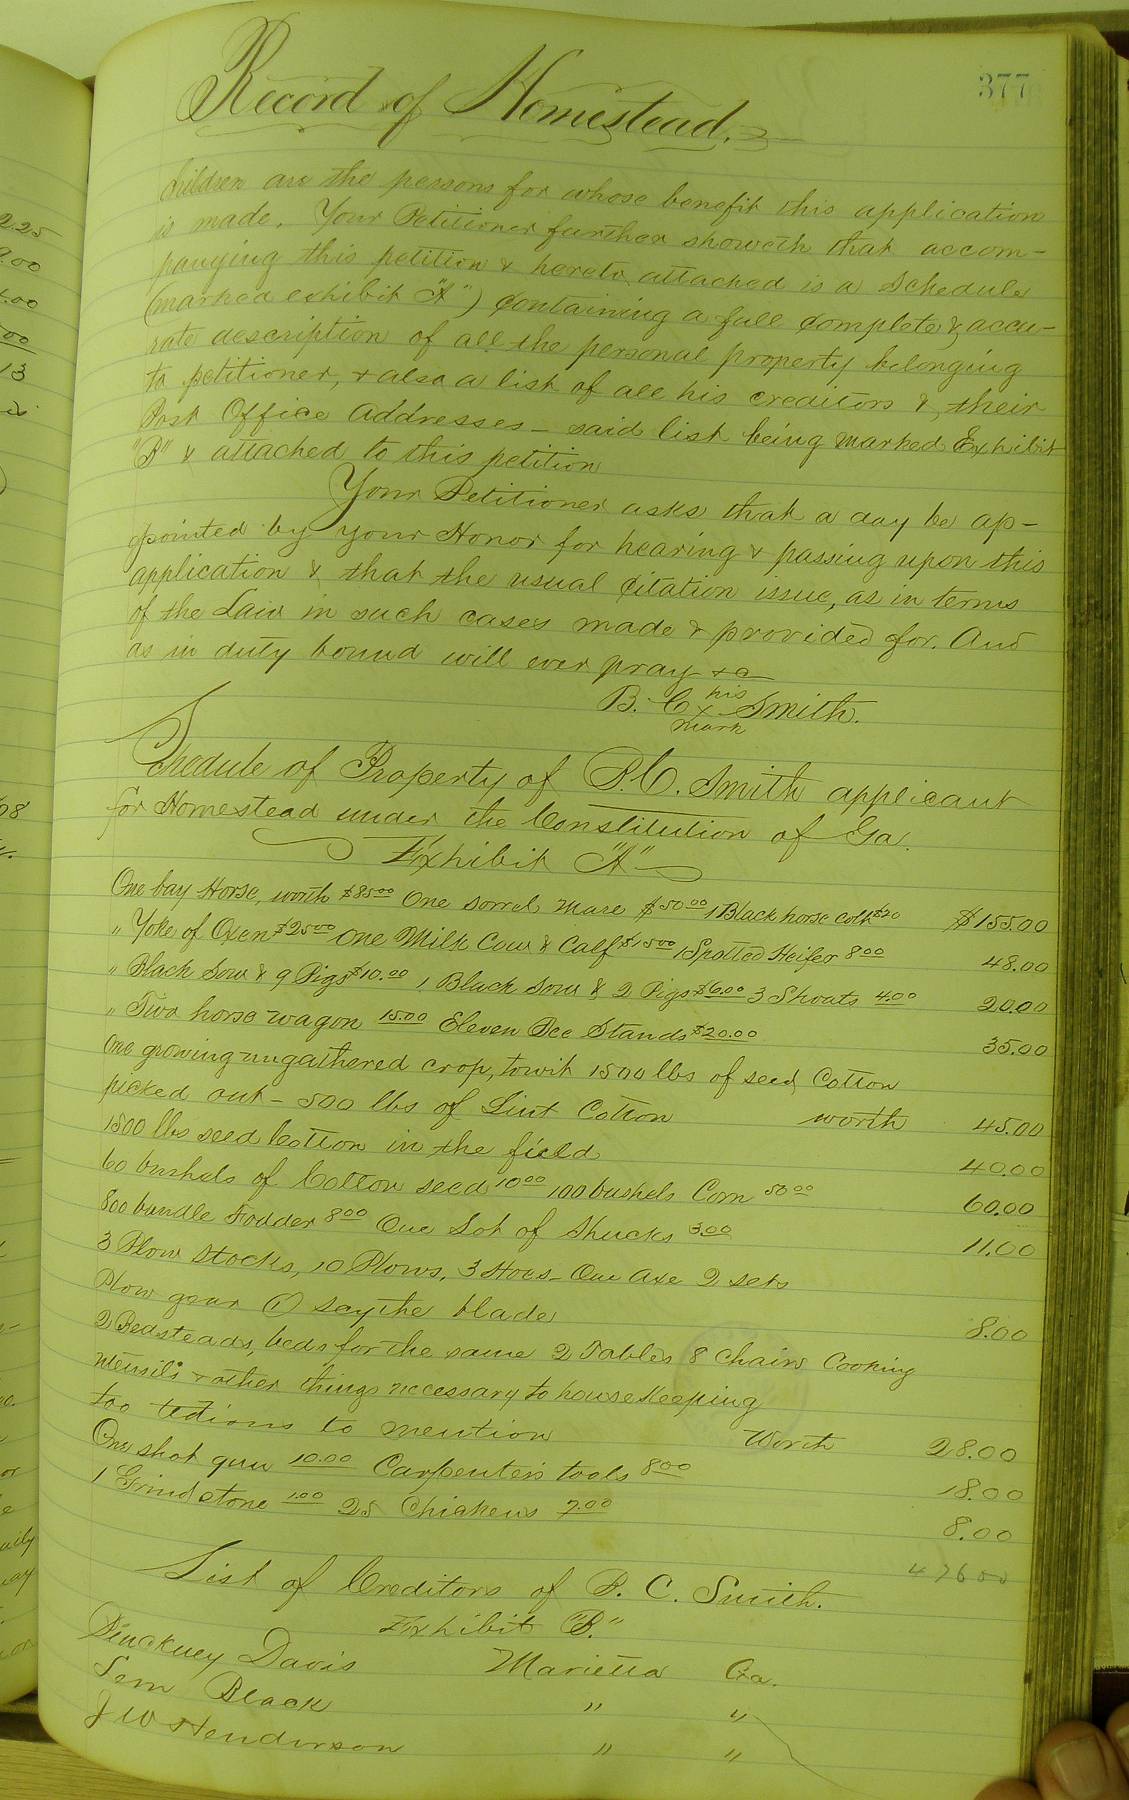 377
Record of Homestead.
children are the persons for whose benefit this application
is made. Your Petitioner further showeth that accom-
panying this petition & hereto attached is a Schedule
(marked exhibit "A") containing a full complete & accu-
rate description of all the personal property belonging
to petitioner, & also a list of all his creditors & their
Post Office Addresses - said list being marked Exhibit
"B" & attached to this petition
Your Petitioner asks that a day be ap-
pointed by your Honor for hearing & passing upon this
application & that the usual citation issue, as in terms
of the Law in such cases made & provided for. And
as in duty bound will ever pray &c
B. C. his x mark Smith.
Schedule of Property of B. C. Smith applicant
for Homestead under the Constitution of Ga.
Exhibit "A"
One bay Horse, worth $85.00 One sorrel Mare $50.00 1 Black horse colt $20 $155.00
" Yoke of Oxen $25.00 One Milk Cow & Calf $15.00 1 Spotted Heifer 8.00 48.00
" Black Sow & 9 Pigs $10.00 1 Black Sow & 2 Pigs $6.00 3 Shoats 4.00 20.00
" Two horse wagon 15.00 Eleven Bee Stands $20.00 35.00
One growing ungathered crop, towit 1500 lbs of seed Cotton
picked out - 500 lbs of Lint Cotton worth 45.00
1500 lbs seed Cotton in the field 40.00
60 bushels of Cotton seed 10.00 100 bushels Corn 50.00 60.00
800 bundle Fodder 8.00 One Lot of Shucks 3.00 11.00
3 Plow Stocks, 10 Plows, 3 Hoes - One Axe 2 sets
Plow gear (1) scythe blade 8.00
2 Bedsteads, beds for the same 2 Tables 8 Chairs Cooking
utensils & other things necessary to house keeping
too tedious to mention Worth 28.00
One shot gun 10.00 Carpenter's tools 8.00 18.00
1 Grindstone 1.00 25 Chickens 7.00 8.00
476 00
List of Creditors of B. C. Smith.
Exhibit "B."
Pinckney Davis Marietta Ga.
Lem Black " "
J W Henderson " "